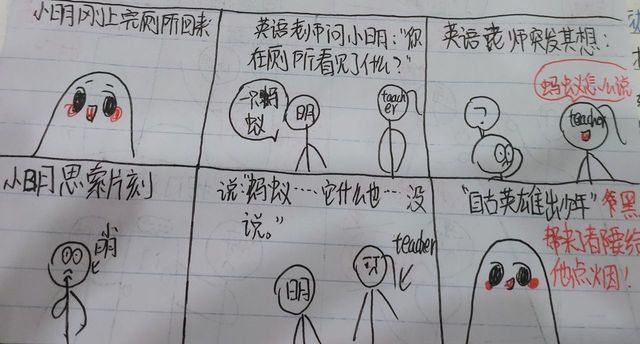 小明刚上完厕所回来
英语老师问小明:"你
在厕所看见了什么?"
一只蚂
蚁
明
teach
er
英语老师突发其想:
蚂蚁怎么说
?
teacher
小明思索片刻
小明
说"蚂蚁……它什么也…没
说。"
明
teacher
"自古英雄出少年"
帮来了都要给
他点烟!